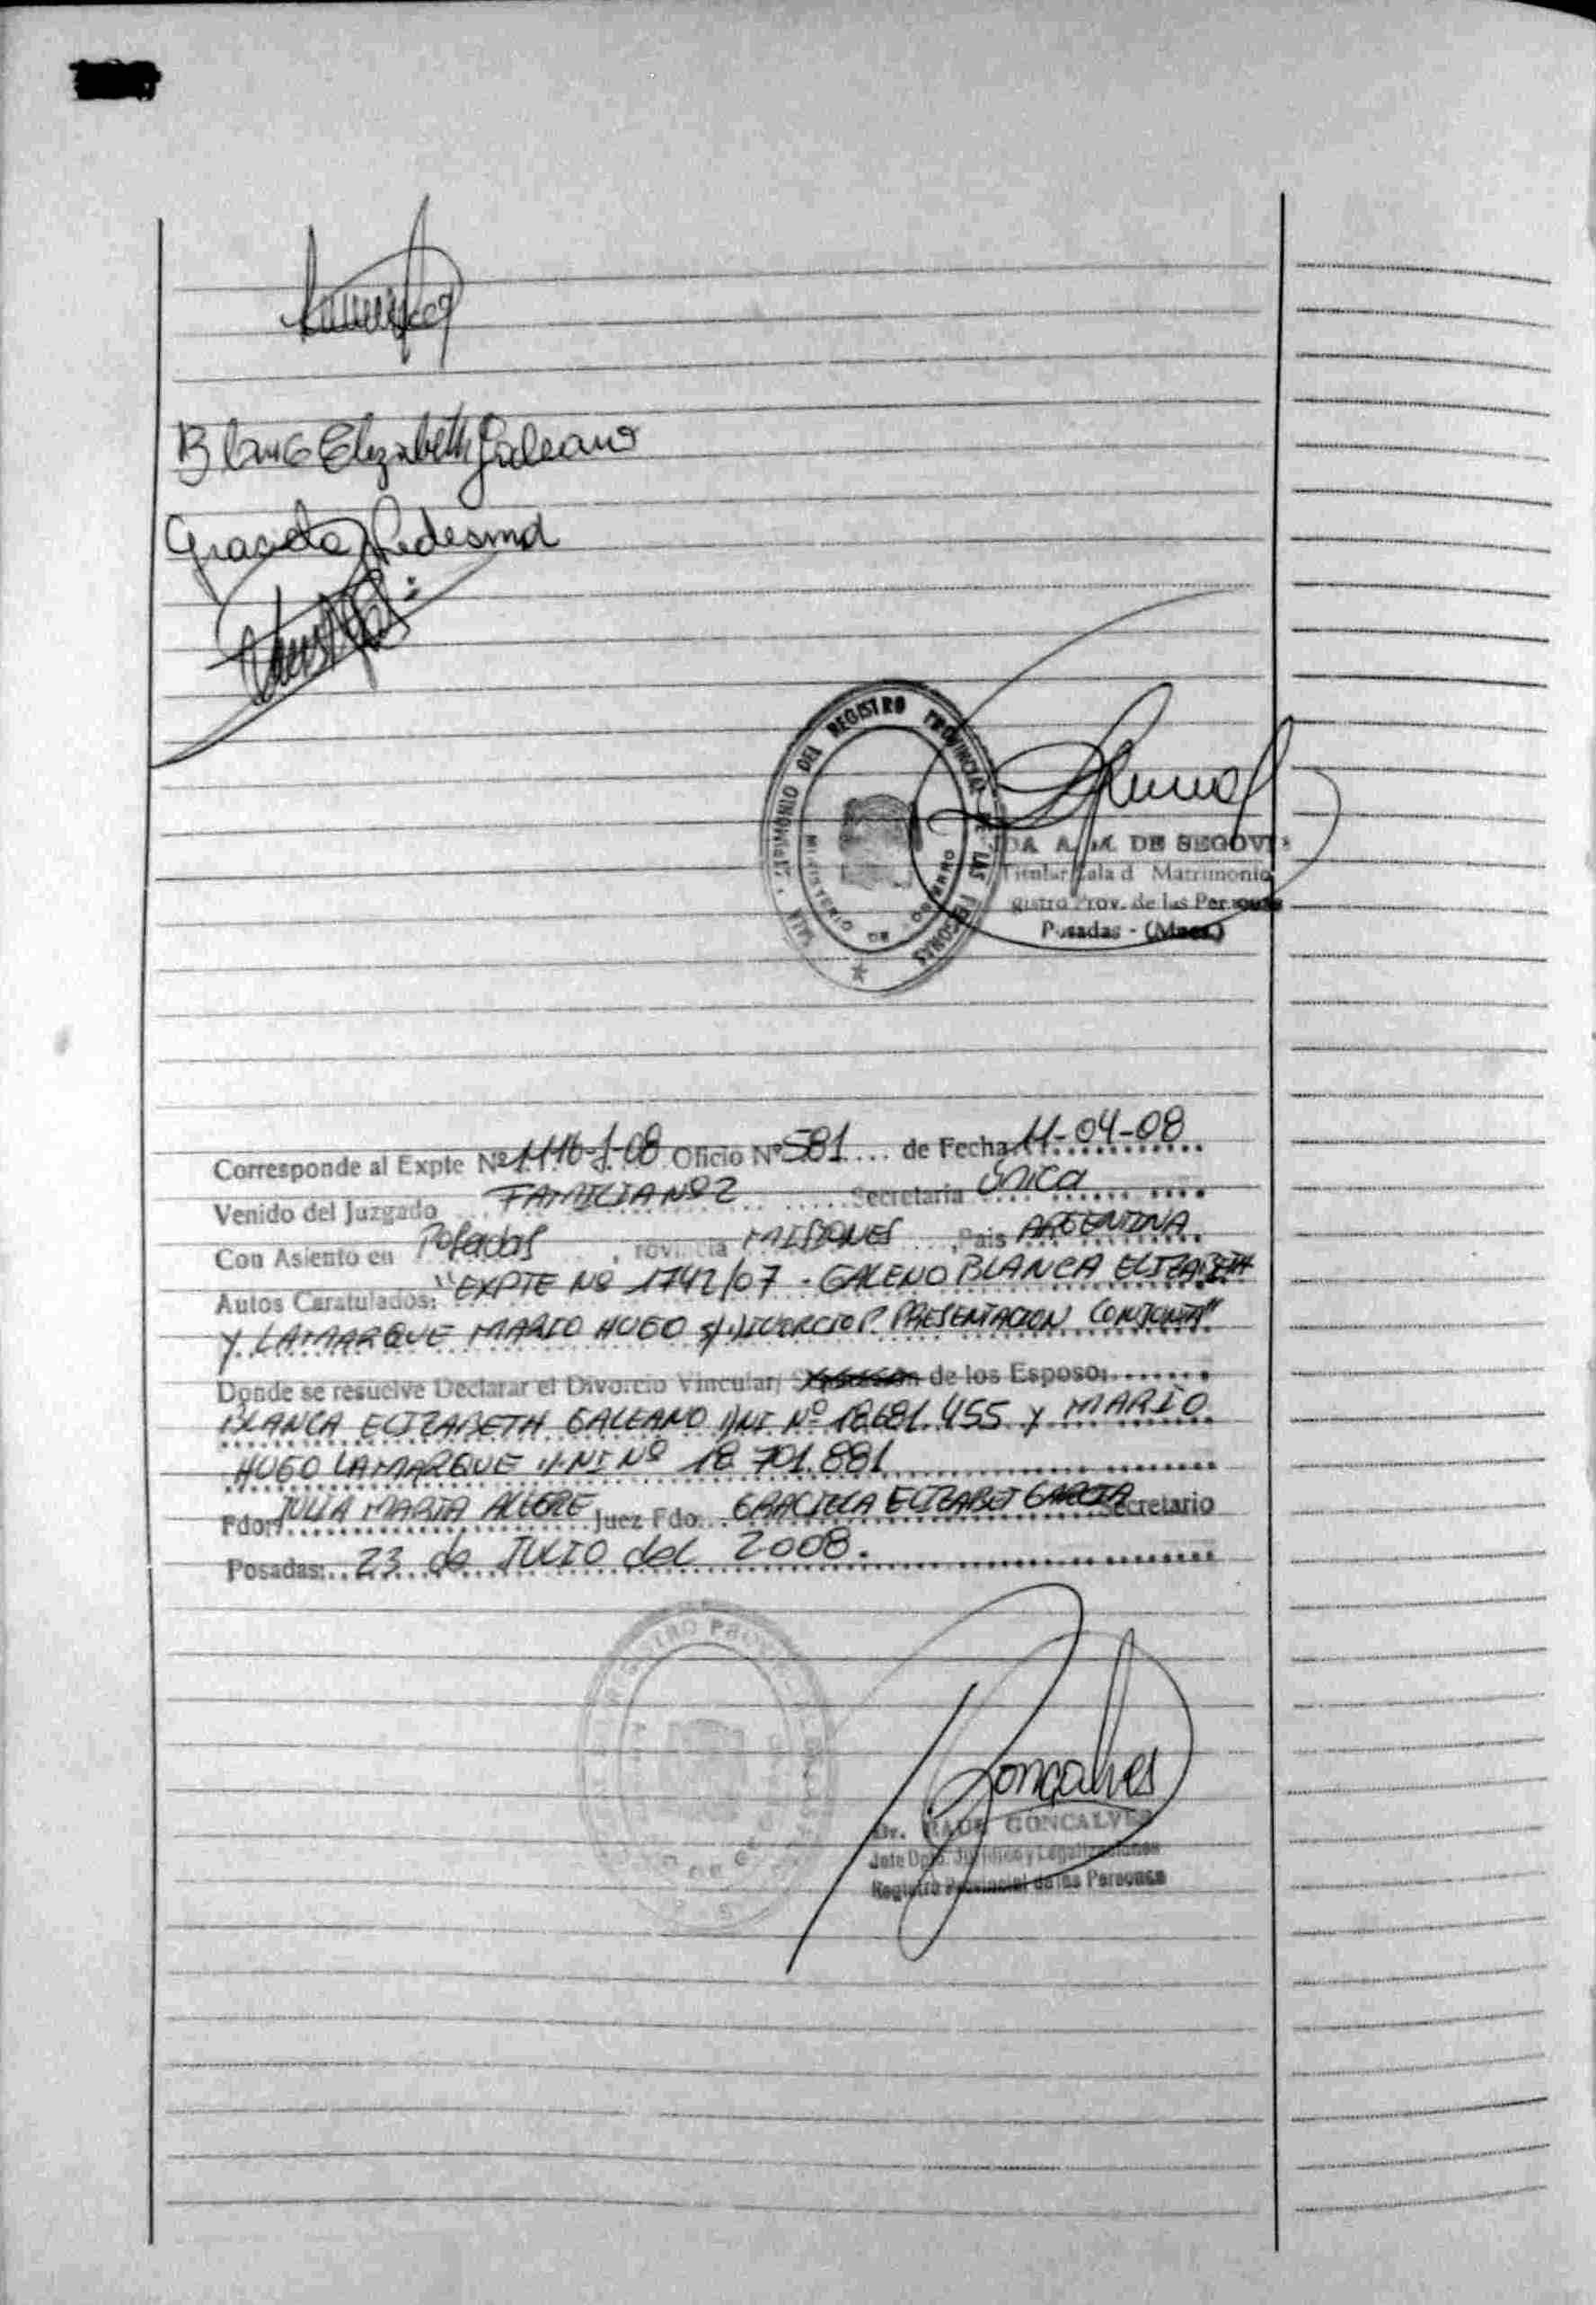 Blanca Elizabeth Galeano
Graciela Ledesma
SALA MATRIMONIO DEL REGISTRO PROVINCIAL DE LAS PERSONAS
MINISTERIO DE GOBIERNO
DA A. M. DE SEGOVI
Titular Sala d Matrimonio
gistro Prov. de las Personas
Posadas - (Mnes.)
Corresponde al Expte Nº 1116-J-08 Oficio Nº 581 de Fecha 11-04-08
Venido del Juzgado FAMILIA Nº 2 Secretaria Única
Con Asiento en Posadas, rovincia MISIONES, Pais ARGENTINA
Autos Caratulados: "EXPTE Nº 1742/07 - GALENO BLANCA ELIZABETH
Y LAMARQUE MARIO HUGO s/ DIVORCIO P. PRESENTACION CONJUNTA"
Donde se resuelve Declarar el Divorcio Vincular/ de los Esposo:
BLANCA ELIZABETH GALEANO DNI Nº 18.681.455 y MARIO
HUGO LAMARQUE DNI Nº 18.701.881
Fdo: JULIA MARTA ALEGRE Juez Fdo: GRACIELA ELIZABET GARCIA Secretario
Posadas: 23 de JULIO del 2008.
Gonçalves
Dr. RAUL GONCALVES
Jefe Dpto. Jurídico y Legalizaciones
Registro Provincial de las Personas